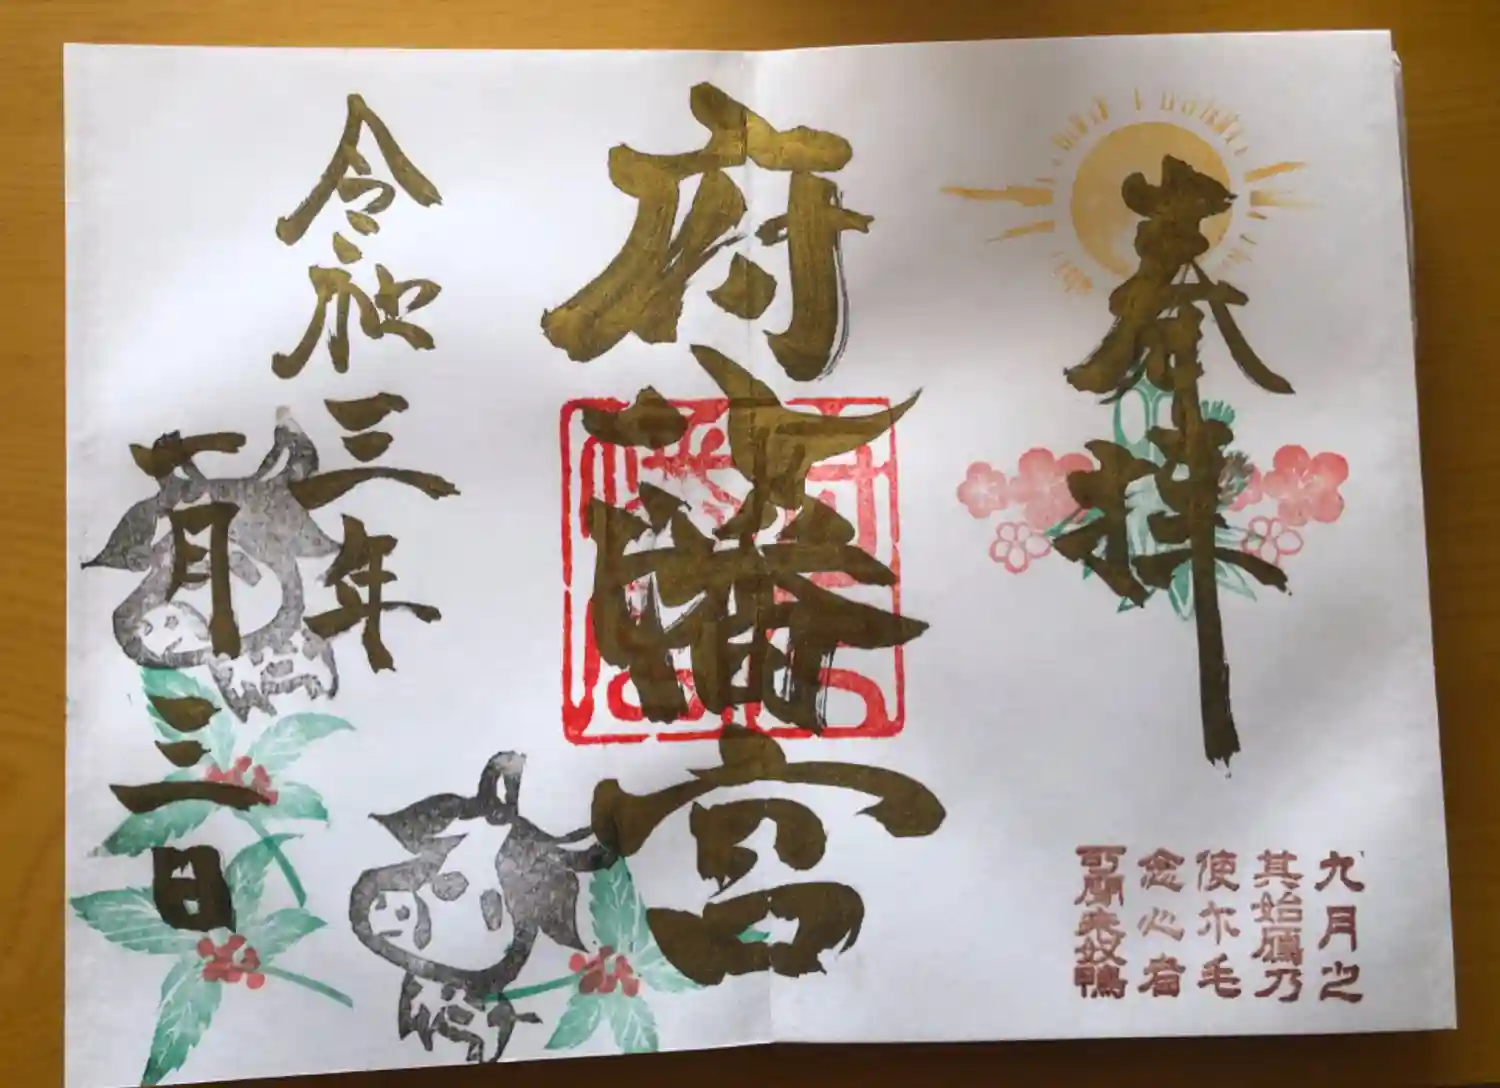 奉拝
府八幡宮
令和三年
一月三日
九月之
其始鴈乃
使尓毛
念心者
可聞来奴鴨